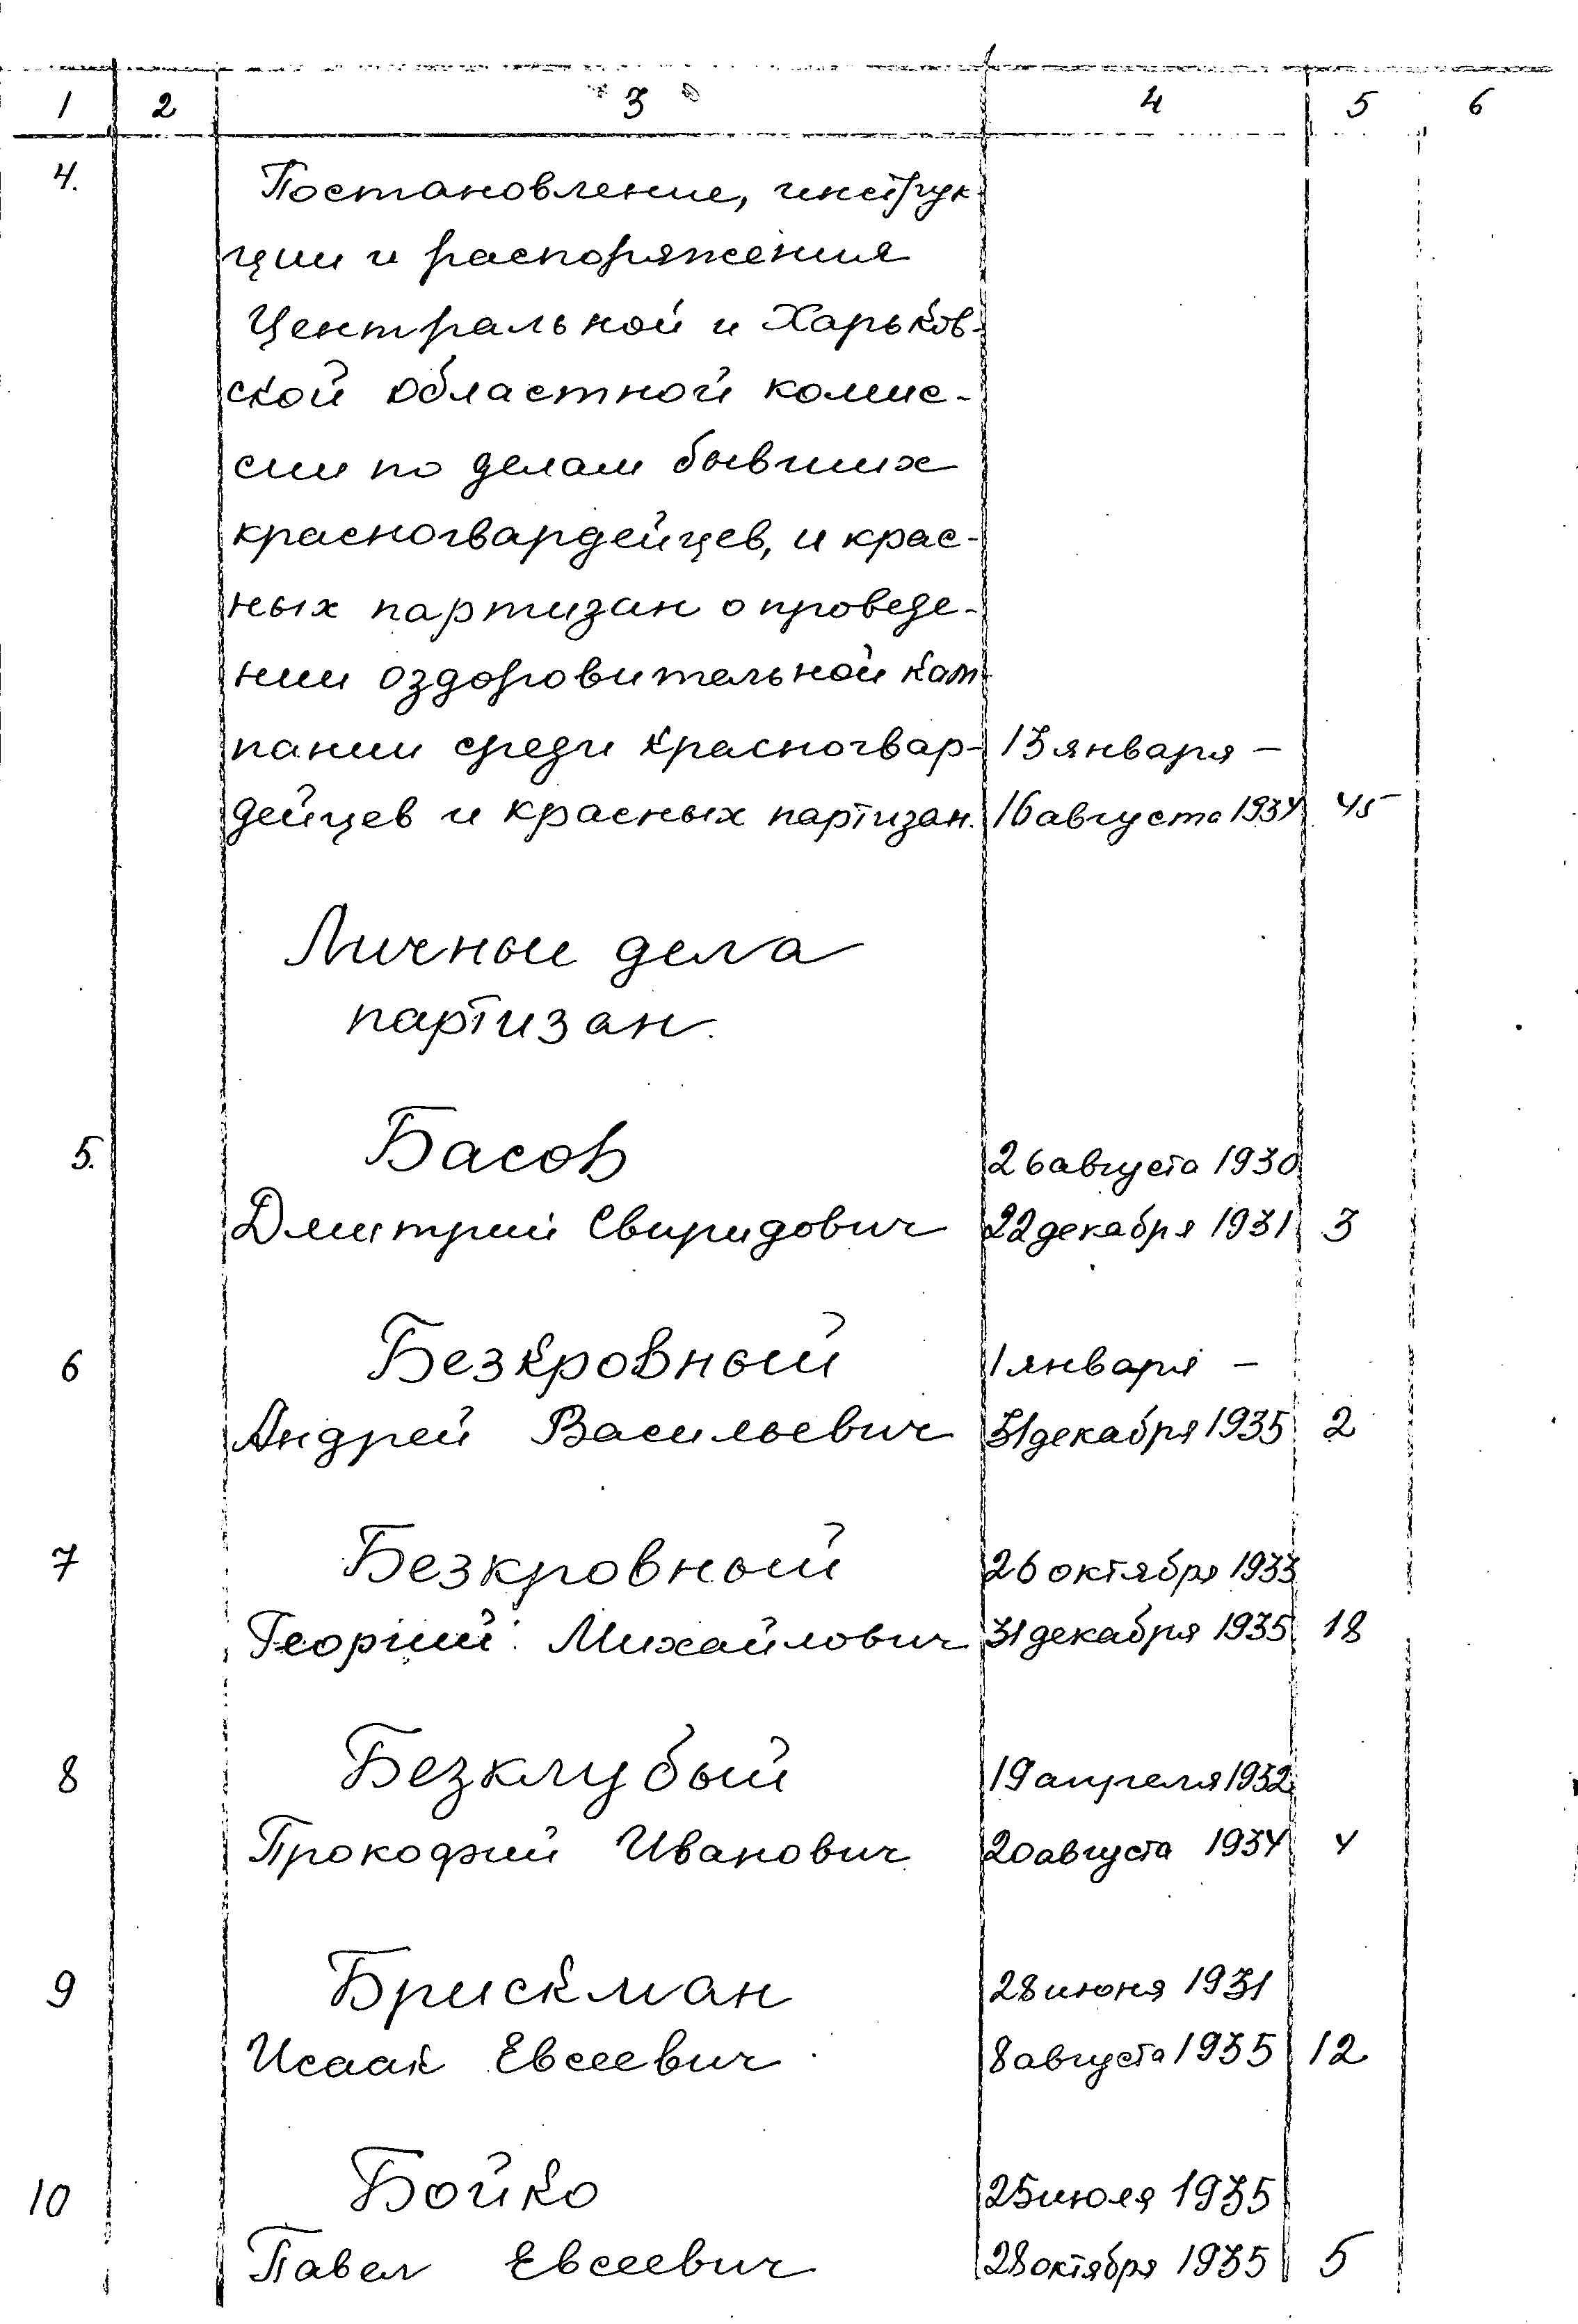 1 2 3 4 5 6
4. Постановление, инструк-
ции и распоряжения
Центральной и Харьков-
ской областной комис-
сии по делам бывших
красногвардейцев, и крас-
ных партизан о проведе-
нии оздоровительной кам-
пании среди красногвар- 13 января –
дейцев и красных партизан. 16 августа 1934 45
Личные дела
партизан.
5. Басов 26 августа 1930
Дмитрий Свиридович 22 декабря 1931 3
6 Безкровный 1 января –
Андрей Васильевич 31 декабря 1935 2
7 Безкровный 26 октября 1933
Георгий Михайлович 31 декабря 1935 18
8 Безклубый 19 апреля 1932
Прокофий Иванович 20 августа 1934 4
9 Брискман 28 июня 1931
Исаак Евсеевич 8 августа 1935 12
10 Бойко 25 июля 1935
Павел Евсеевич 28 октября 1935 5